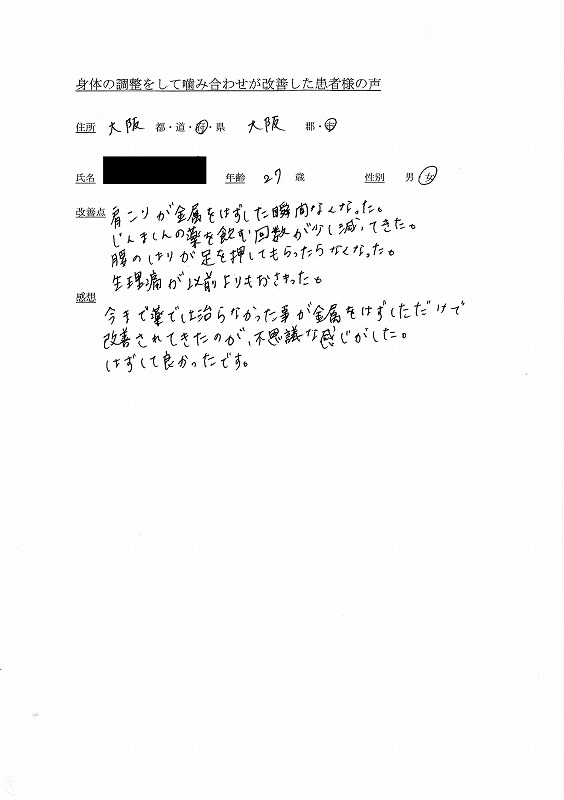 身体の調整をして噛み合わせが改善した患者様の声
住所 大阪 都・道・府・県 大阪 郡・市
氏名 年齢 27 歳 性別 男 女
改善点 肩こりが金属をはずした瞬間なくなった。
じんましんの薬を飲む回数が少し減ってきた。
腰のはりが足を押してもらったらなくなった。
生理痛が以前よりもおさまった。
感想
今まで薬では治らなかった事が金属をはずしただけで
改善されてきたのが、不思議な感じがした。
はずして良かったです。